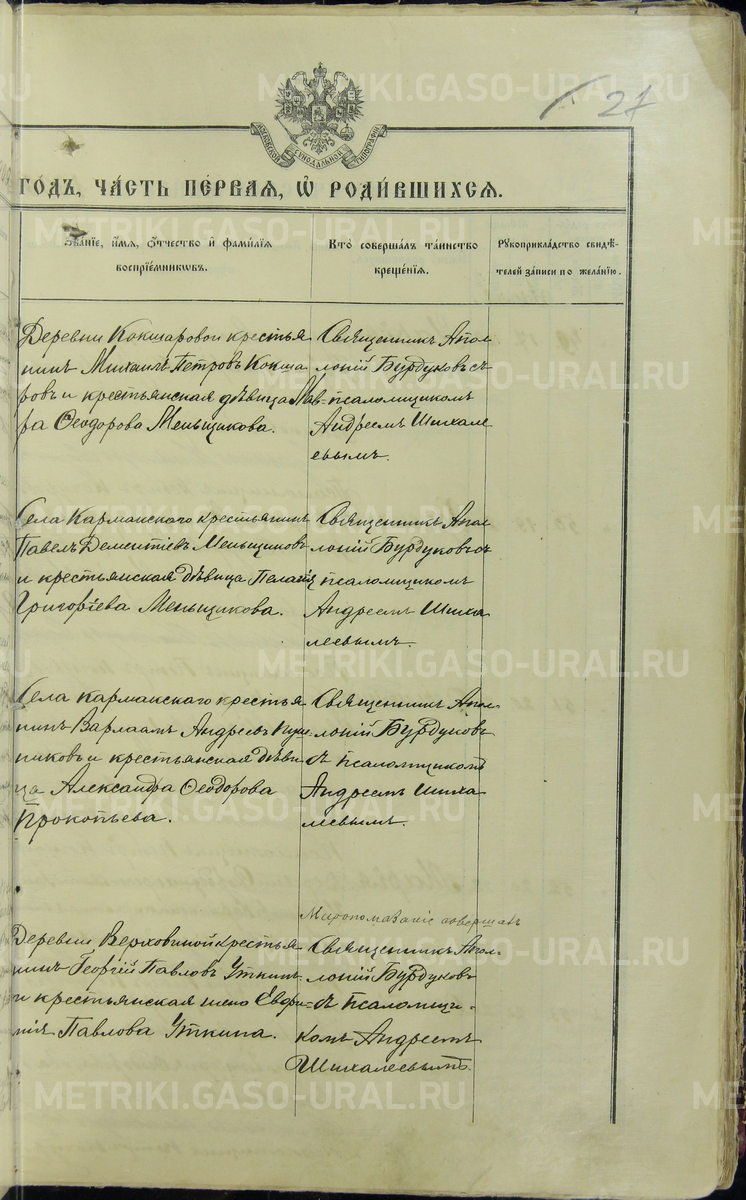 27
МОСКОВСКОЙ СѴНОДАЛЬНОЙ ТИПОГРАФІИ
ГО́ДЪ, ЧА́СТЬ ПЕ́РВАЯ, Ѡ҆ РОДИ́ВШИХСЯ.
Зва́нїе, и҆́мѧ, ѻ҆́тчество и҆ фами́лїѧ
воспрїе́мникѡвъ.
Кто̀ соверша́лъ та́инство
креще́нїѧ.
Рꙋкоприкла́дство свидѣ́-
телей за́писи по жела́нїю.
Деревни Кокшаровой крестья
нинъ Михаилъ Петровъ Кокша
ровъ и крестьянская дѣвица Мав-
ра Ѳеодорова Меньщикова.
Священникъ Апол
лоній Бурдуковъ съ
псаломщикомъ
Андреемъ Шихале
евымъ.
Села Кармакского крестьянинъ
Павелъ Дементіевъ Меньщиковъ
и крестьянская дѣвица Пелагія
Григоріева Меньщикова.
Священникъ Апол
лоній Бурдуковъ съ
псаломщикомъ
Андреемъ Шиха
леевымъ.
Села Кармакского крестья
нинъ Варлаамъ Андреевъ
никовъ и крестьянская дѣви
ца Александра Ѳеодорова
Прокопьева.
Священникъ Апол
лоній Бурдуковъ
съ псаломщикомъ
Андреемъ Шиха
леевымъ.
Деревни Верховиной крестья
нинъ Георгій Павловъ Уткинъ
и крестьянская жена Евфи-
мія Павлова Уткина.
Миропомазаніе совершалъ
Священникъ Апол-
лоній Бурдуковъ
съ псаломщи-
комъ Андреемъ
Шихалеевымъ.
METRIKI.GASO-URAL.RU
METRIKI.GASO-URAL.RU
METRIKI.GASO-URAL.RU
METRIKI.GASO-URAL.RU
METRIKI.GASO-URAL.RU
METRIKI.GASO-URAL.RU
METRIKI.GASO-URAL.RU
METRIKI.GASO-URAL.RU